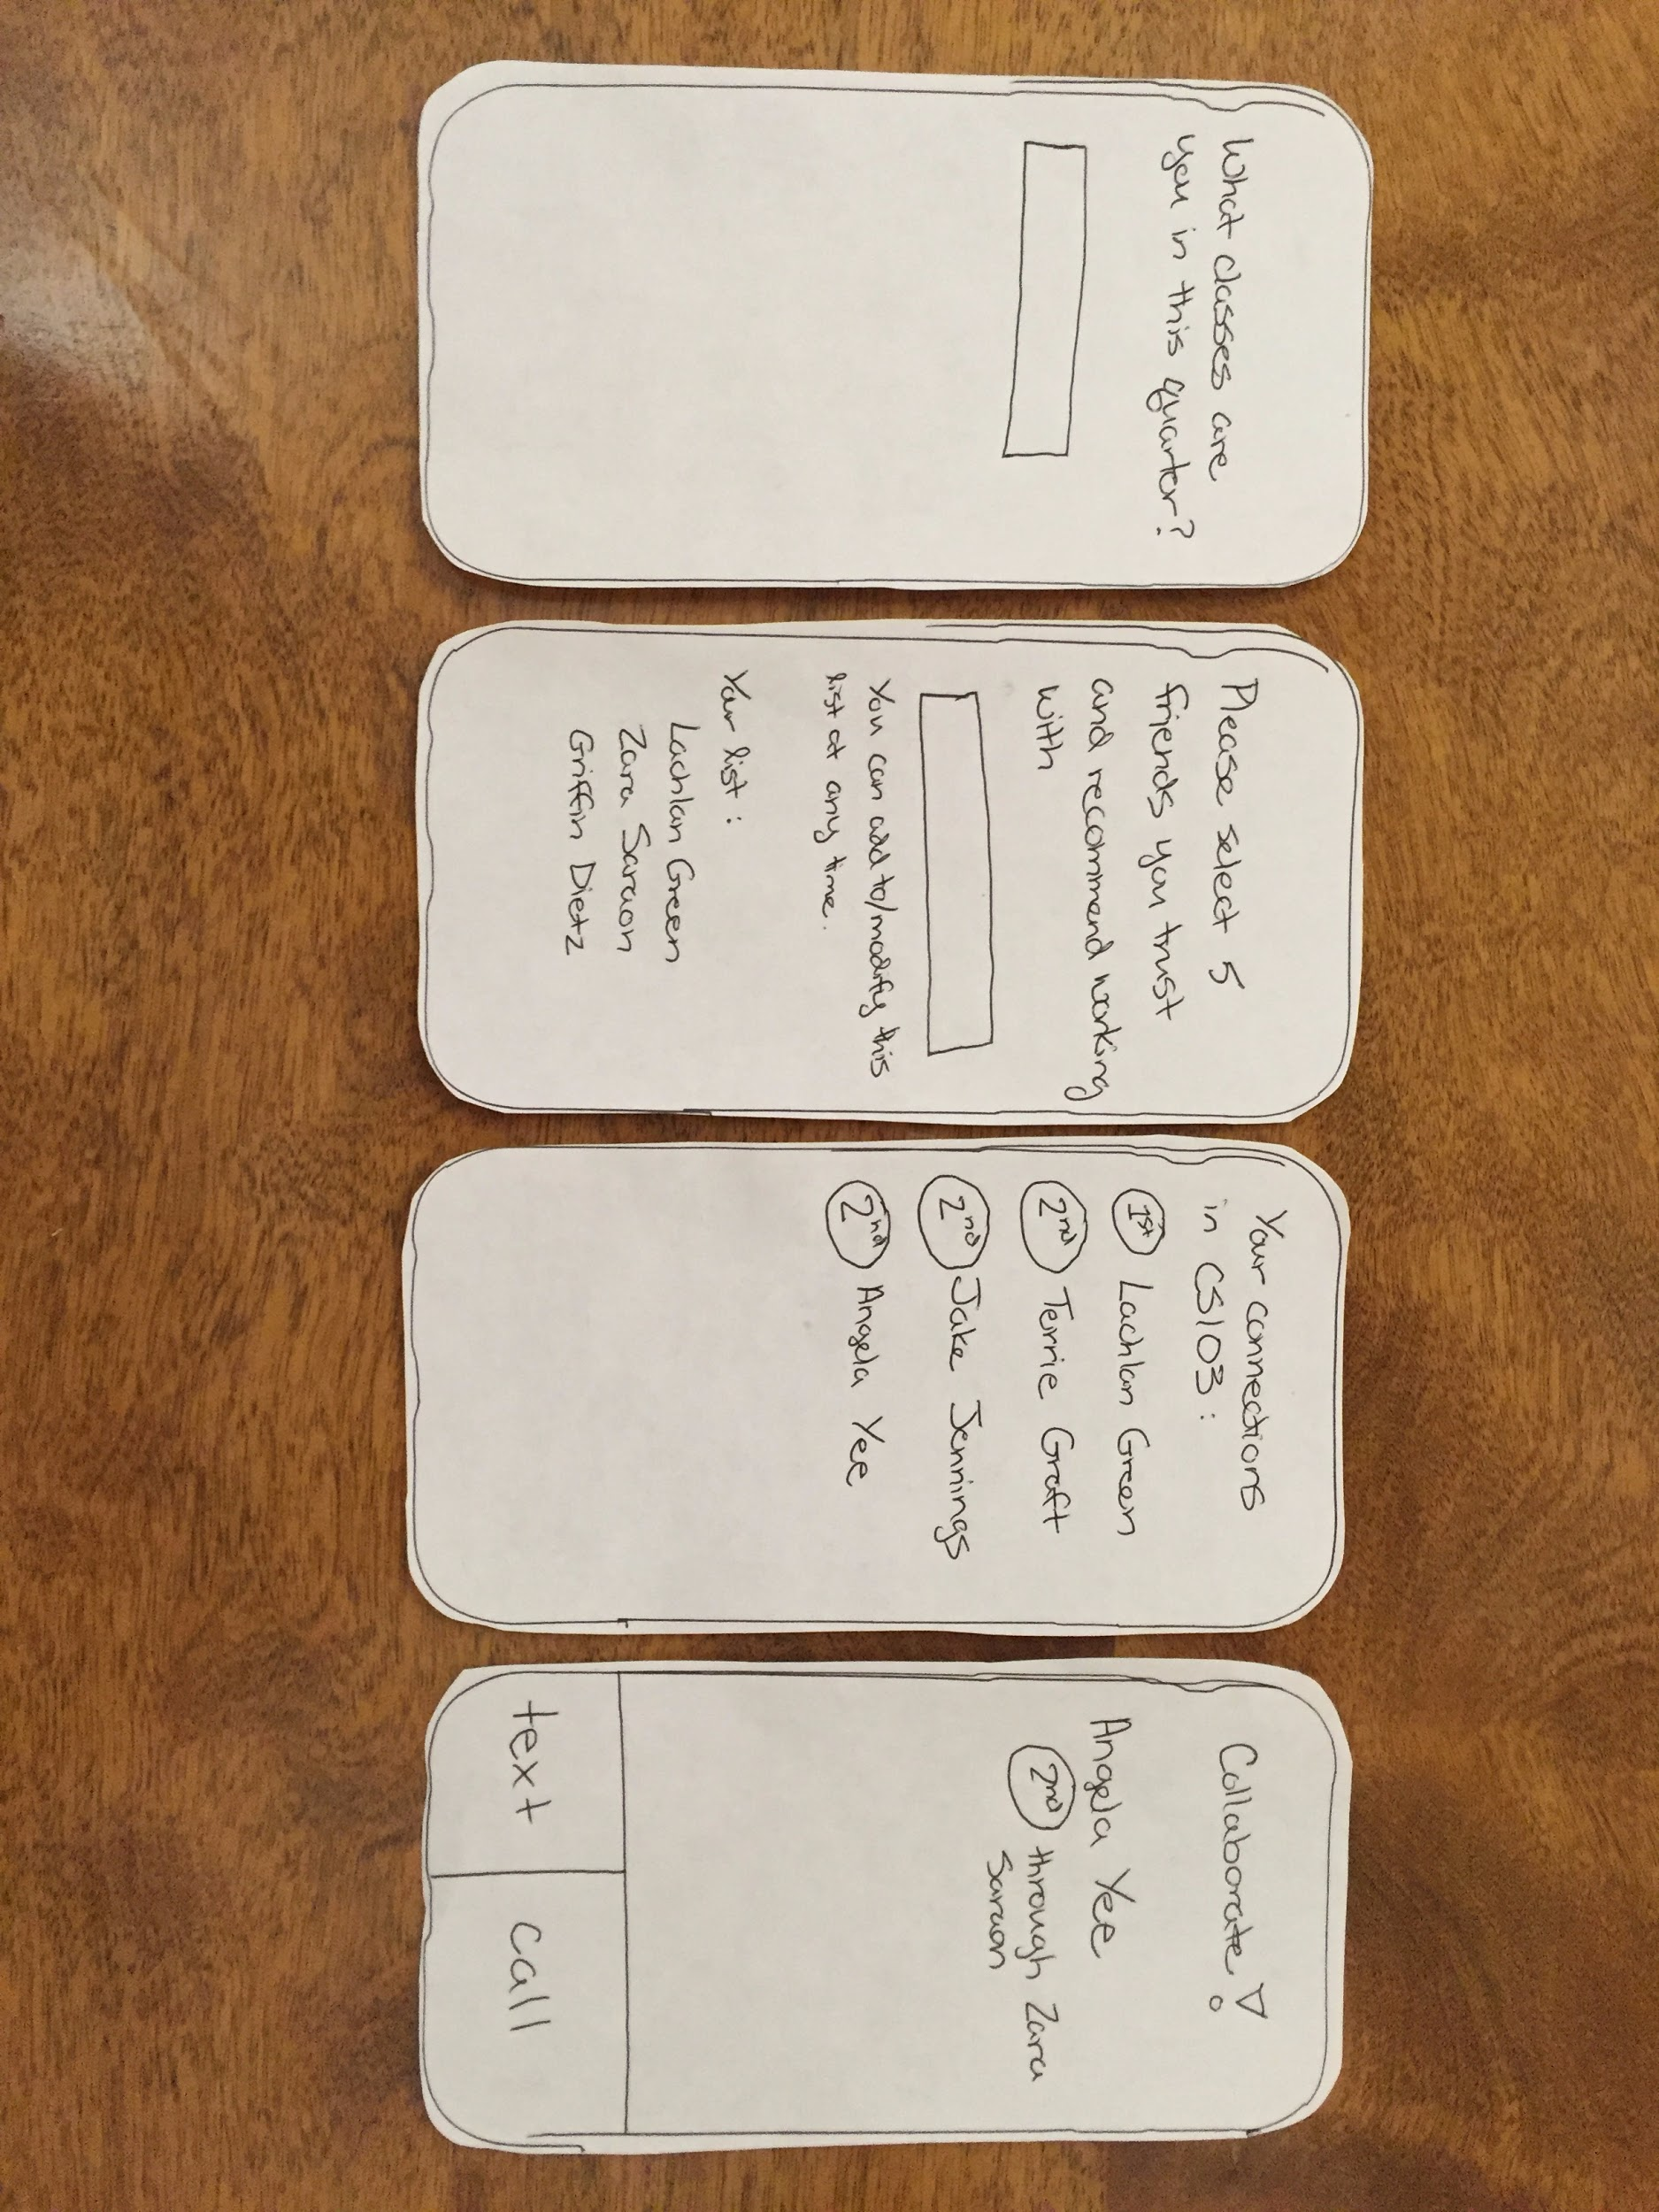 What classes are
you in this quarter?
Please select 5
friends you trust
and recommend working
with
You can add to/modify this
list at any time.
Your list:
Lachlan Green
Zara Saraon
Griffin Dietz
Your connections
in CS103:
1st Lachlan Green
2nd Terrie Graft
2nd Jake Jennings
2nd Angela Yee
Collaborate!
Angela Yee
2nd through Zara
Saraon
text
call